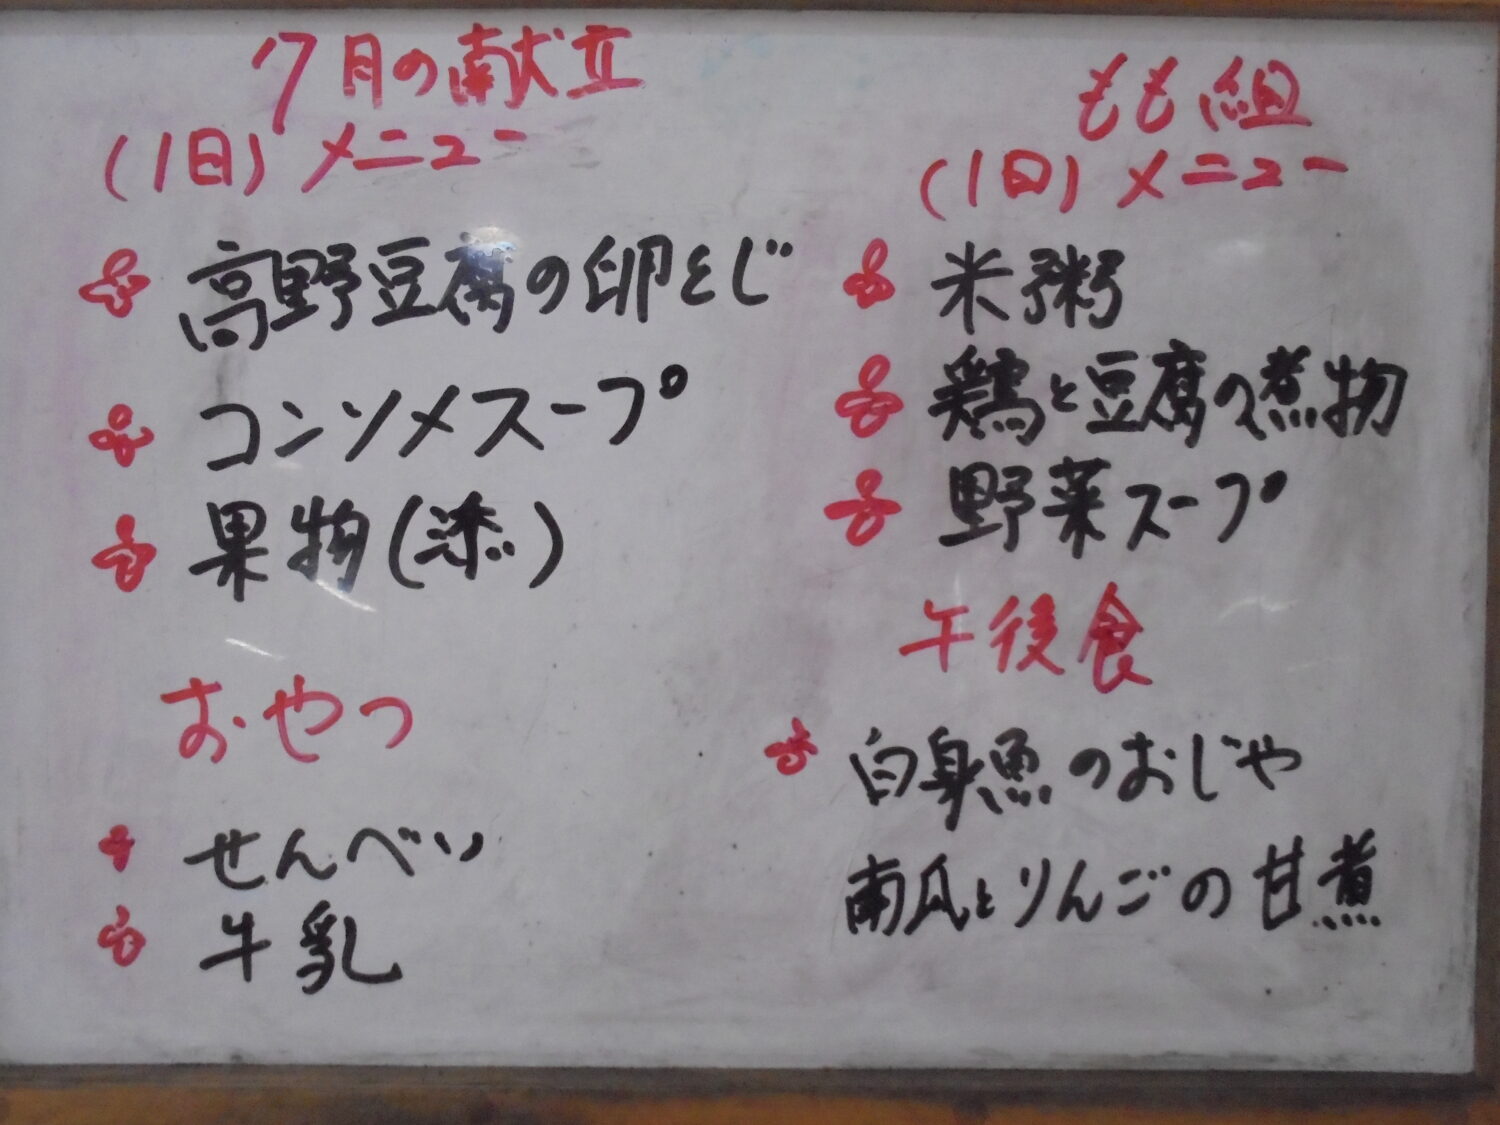 7月の献立
(1日)メニュー
高野豆腐の卵とじ
コンソメスープ
果物(添)
おやつ
せんべい
牛乳
もも組
(1日)メニュー
米粥
鶏と豆腐の煮物
野菜スープ
午後食
白身魚のおじや
南瓜とりんごの甘煮